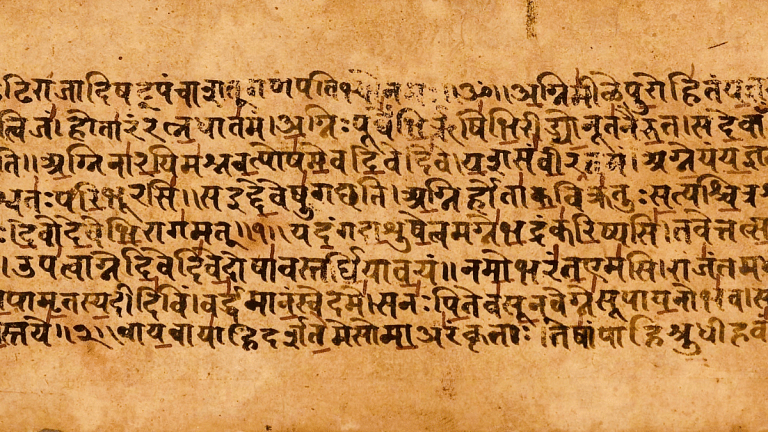 ॐ॥अग्निमीळेपुरोहितंय
त्विजं।होतारंरत्नधातमं।अग्निःपूर्वेभिर्ऋषिभिरीड्योनूतनैरुत।सदेवाँ
ति॥अग्निनारयिमश्नवत्पोषमेवदिवेदिवे।यशसंवीर।अग्नेयंयज्ञ
श्वतःपरिभूरसि।सइद्देवेषुगछति।अग्निर्होताकविक्रतुःसत्यश्चित्रश्र
देवोदेवेभिरागमत्॥१॥यदंगदाशुषेत्वमग्नेभद्रंकरिष्यसि।तवेत्तत्स
।उपत्वाग्नेदिवेदिवेदोषावस्तर्धियावयं॥नमोभरंतएमसि।राजंतम
पामृतस्यदीदिविं।वर्द्धमानंस्वेदमे।सनःपितेवसूनवेग्नेसूपायनोभव।स
स्तये॥२॥वायवायाहिदर्शतेमेसोमाअरंकृताः।तेषांपाहिश्रुधीहवं